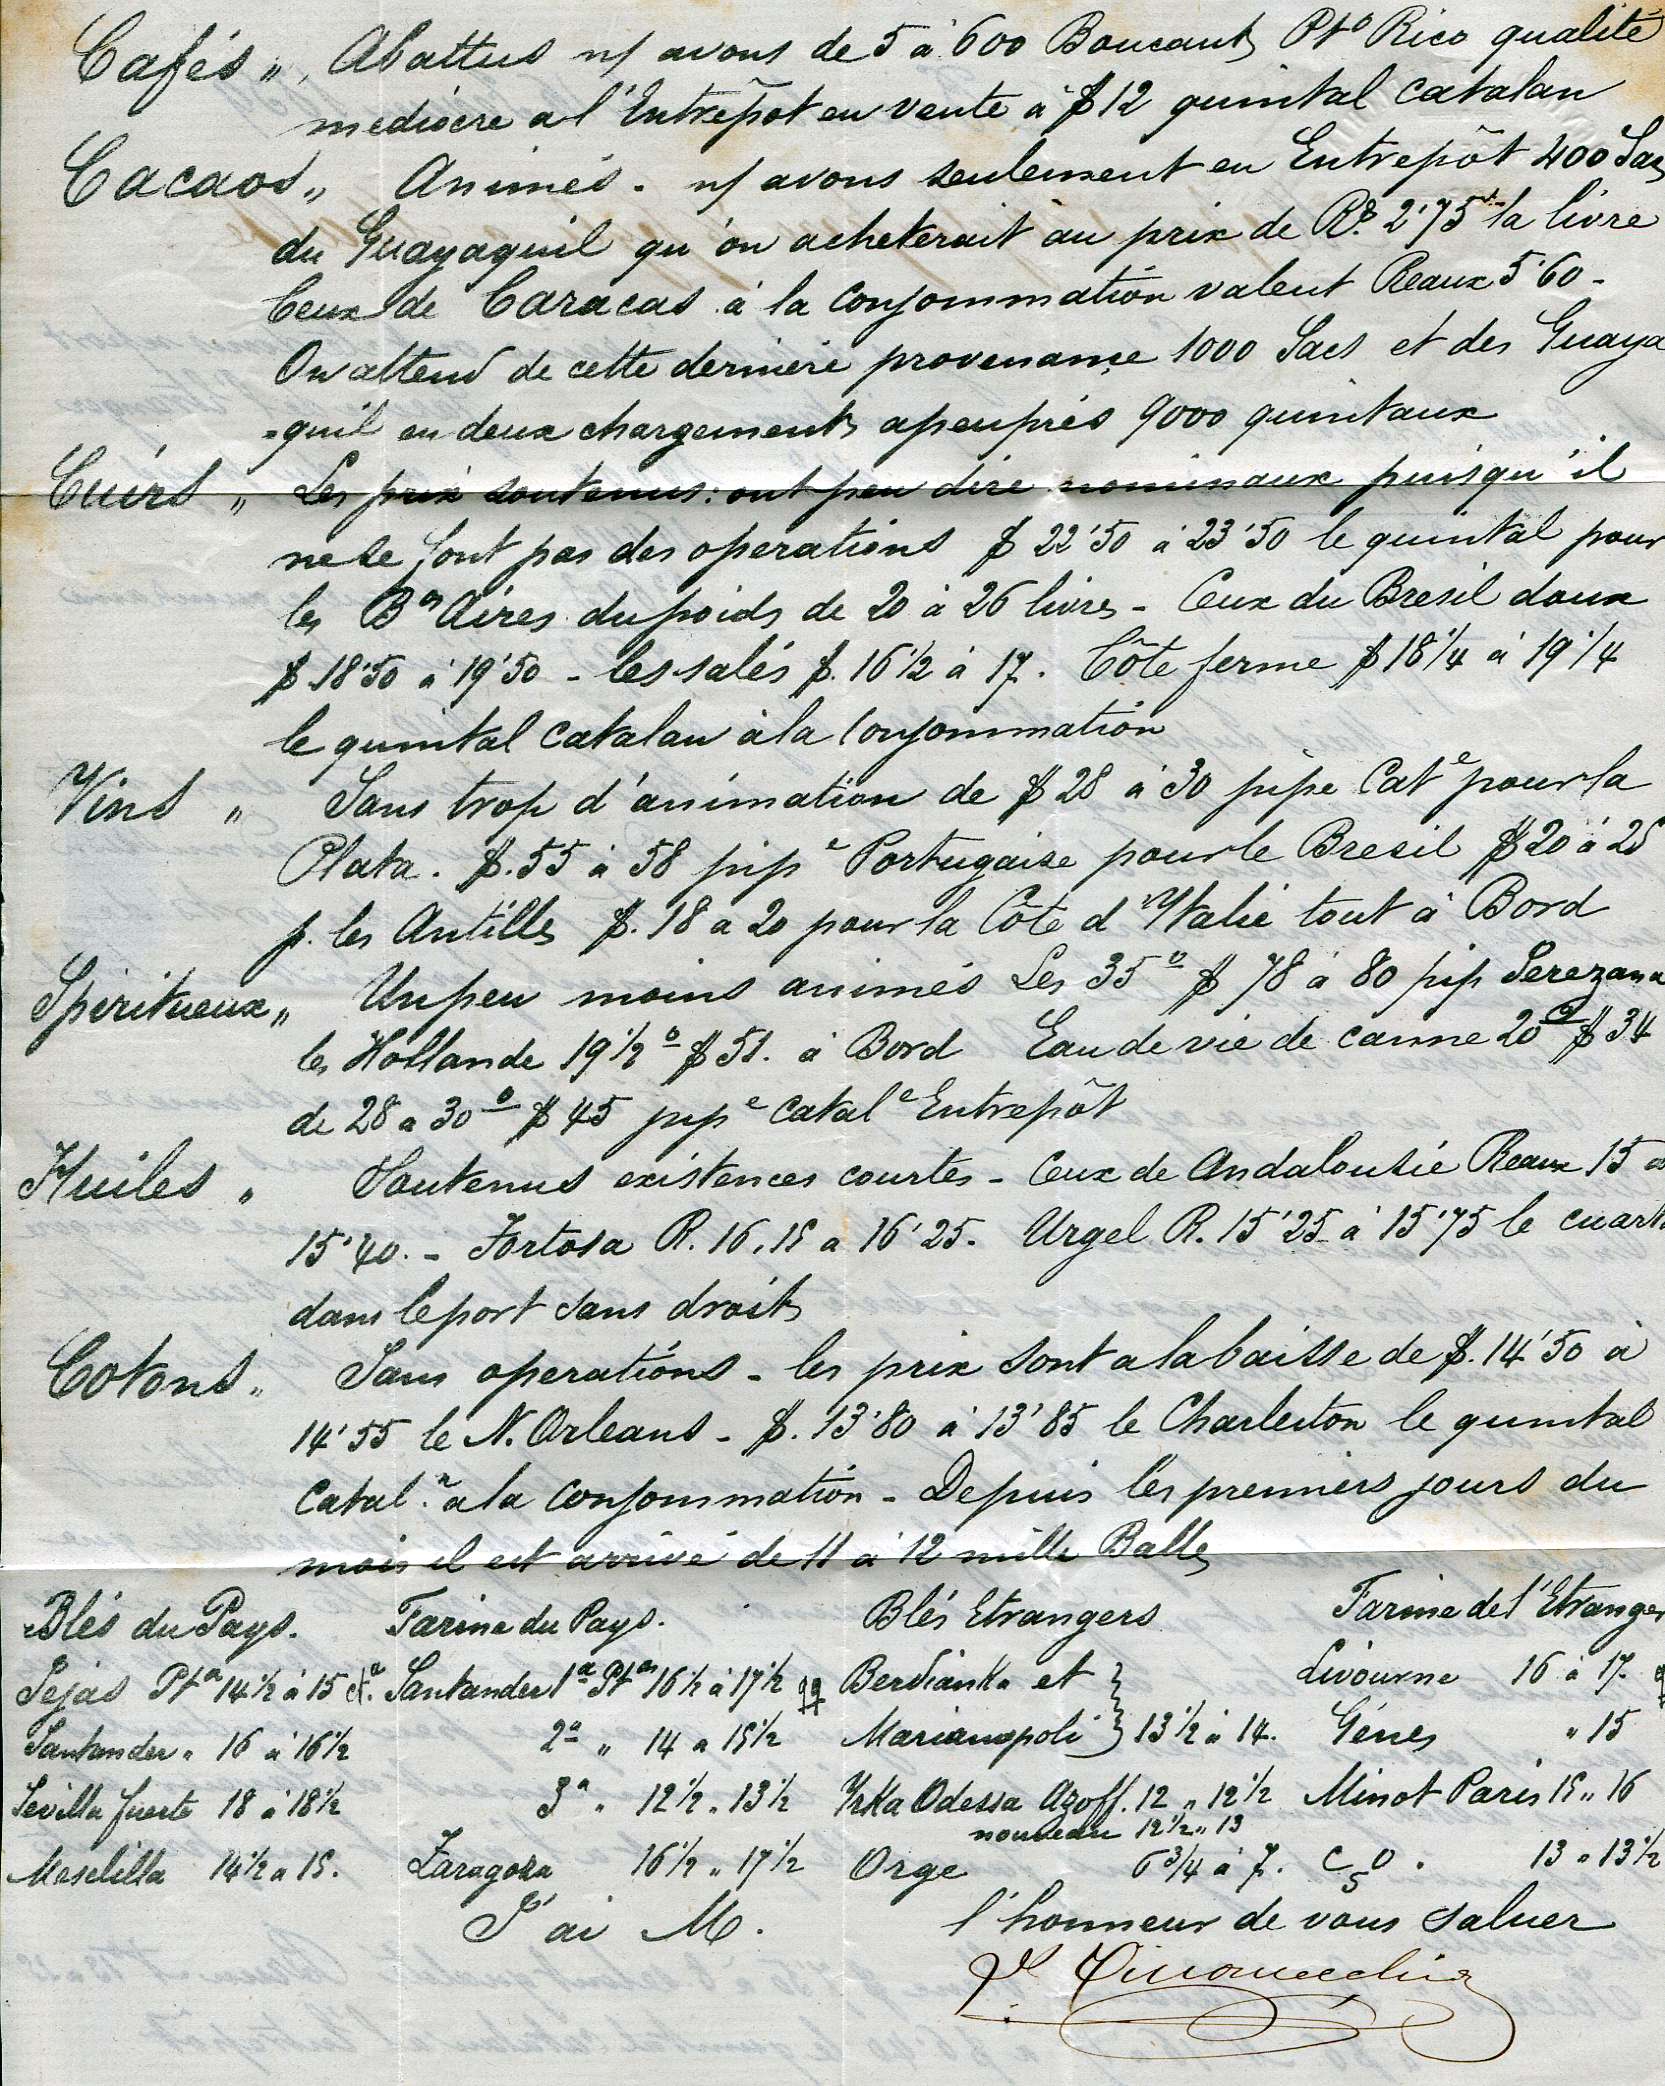 Cafés „ , Abattus n/ avons de 5 à 600 Boucauts Pto Rico qualité
mediocre a l'Entrepôt en vente à $ 12 quintal catalan
Cacaos „ Animés - n/ avons seulement en Entrepôt 400 Sacs
du Guayaquil qu'on acheterait au prix de Rs. 2'75 la livre
Ceux de Caracas à la consommation valent Reaux 5'60 -
On attend de cette derniere provenançe 1000 Sacs et des Guaya
=quil en deux chargements apeuprés 9000 quintaux
Cuirs „ Les prix soutenus: ont peu dire nominaux puisqu'il
ne se font pas des operations $ 22'50 à 23'50 le quintal pour
les Bs Aires du poids de 20 à 26 livres - Ceux du Bresil doux
$ 18'50 à 19'50 - les salés $. 16 1/2 à 17. Côte ferme $ 18 1/4 à 19 1/4
le quintal catalan à la consommation
Vins „ Sans trop d'animation de $ 28 à 30 pipe Cate pour la
Plata. $. 55 à 58 pipe Portugaise pour le Bresil $ 20 à 25
p. les Antilles $. 18 a 20 pour la Côte d'Italie tout à Bord
Spiritueux „ Un peu moins animés Les 35º $ 78 à 80 pip Jerezana
les Hollande 19 1/2 º $ 51. à Bord Eau de vie de canne 20º $ 34
de 28 a 30º $ 45 pipe catale Entrepôt
Huiles „ Soutenus existences courtes - Ceux de Andalousie Reaux 15 a
15'40. - Tortosa R. 16.15 a 16'25. Urgel R. 15'25 à 15'75 le cuart.
dans le port sans droits
Cotons „ Sans operations - les prix sont a la baisse de $. 14'50 à
14'55 le N. Orleans - $. 13'80 à 13'85 le Charleston le quintal
Catal.n a la consommation - Depuis les premiers jours du
mois il est arrivé de 11 a 12 mille Balles
Blés du Pays. Farine du Pays. Blés Etrangers Farine de l'Etranger
Jejas Pta 14 1/2 à 15 Santander 1a Ptas 16 1/2 à 17 1/2 qq Berdianka et Livourne 16 à 17.
Santander „ 16 à 16 1/2 2a „ 14 a 15 1/2 Marianopoli } 13 1/2 à 14. Génes „ 15
Sevilla fuerte 18 à 18 1/2 3a „ 12 1/2 „ 13 1/2 Yrka Odessa Azoff. 12 „ 12 1/2 Minot Paris 15 „ 16
nouveau 12 1/2 „ 13
Mesclilla 14 1/2 a 15. Zaragoza 16 1/2 „ 17 1/2 Orge 6 3/4 à 7. 13 „ 13 1/2
J'ai M. l'honneur de vous saluer